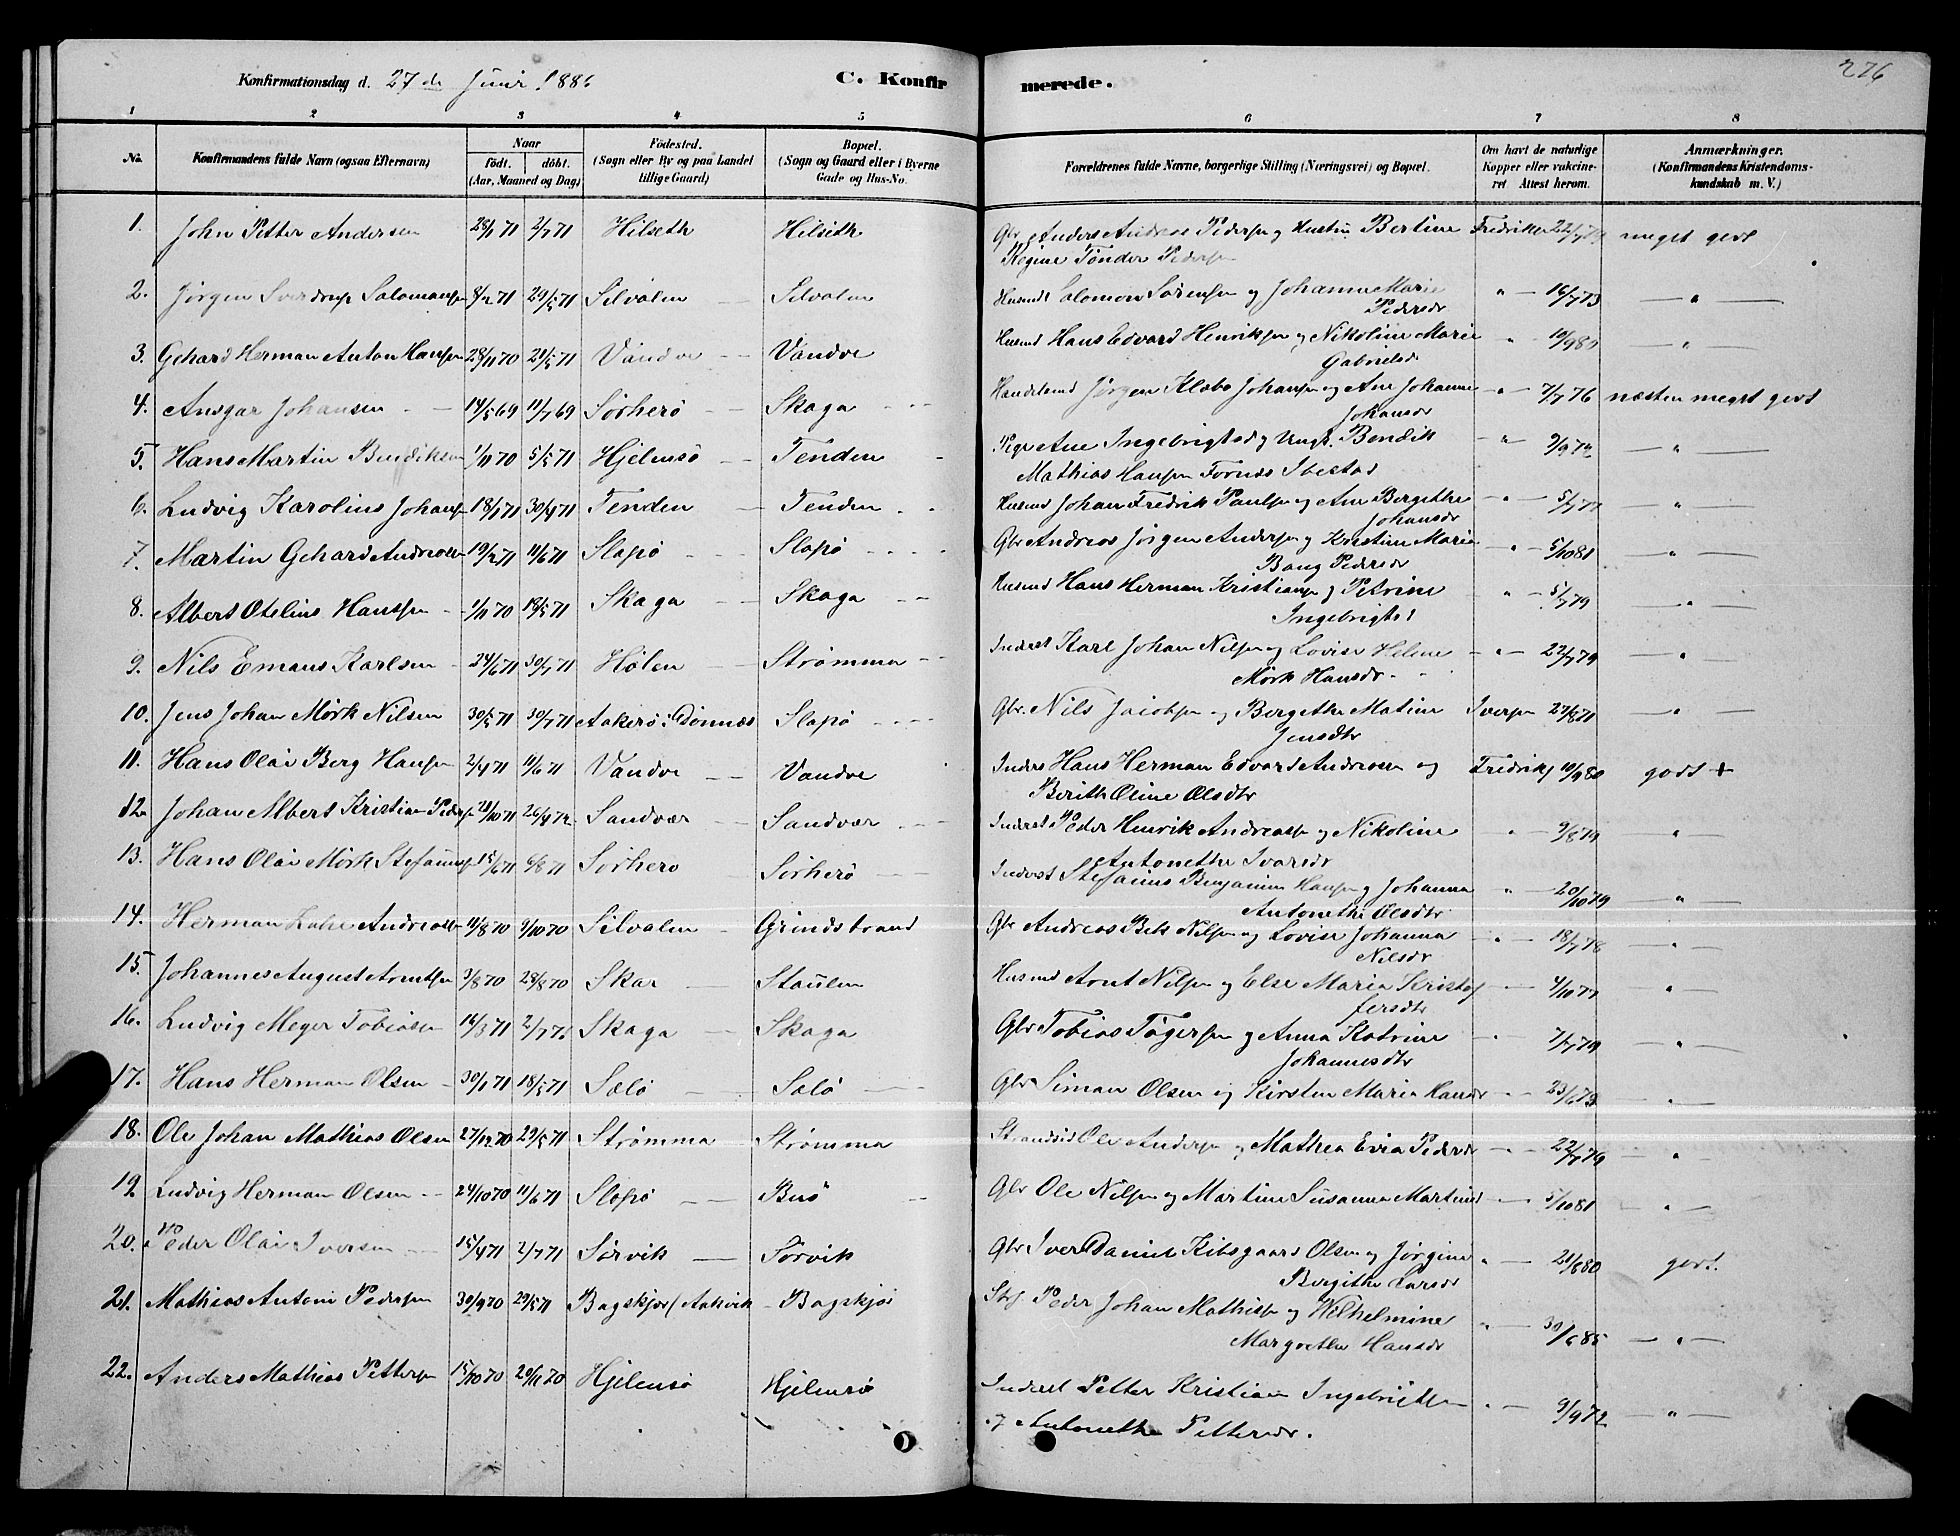 Konfirmationsdag d. 27de Juni 1886 C. Konfir merede. 276
1 2 3 4 5 6 7 8
No. Konfirmandens fulde Navn (ogsaa Efternavn) Naar födt. döbt. (Aar, Maaned og Dag) Födested. (Sogn eller By og paa Landet tillige Gaard) Bopæl. (Sogn og Gaard eller i Byerne Gade og Hus-No. Forældrenes fulde Navne, borgerlige Stilling (Næringsvei) og Bopæl. Om havt de naturlige Kopper eller vakcineret. Attest herom. Anmærkninger. (Konfirmandens Kristendomskundskab m. V.)
1. John Petter Andersen 28/1 71 2/7 71 Hilseth Hilseth Gbr. Anders Andreas Pedersen og Hustru Bertine Fredriks 22/7 79 meget godt
Regine Tønder Pedersen
2. Jørgen Sverdrup Salomonsen 8/2 71 29/5 71 Silvalen Silvalen Husmd Salomon Sørensen og Johanna Marie " 16/7 73 "
Pedersdr
3. Gehard Herman Anton Hansen 28/11 70 21/5 71 Vandve Vandve Husmd Hans Edvard Henriksen og Nikoline Marie " 10/9 80 "
Gabrielsdr
4. Ansgar Johansen 14/5 69 11/7 69 Sørherø Skaga Handelsmd Jørgen Klæbo Johansen og Ane Johanne " 7/7 76 næsten meget godt
Johansdr
5. Hans Martin Bendiksen 1/11 70 5/5 71 Hjelmsø Tenden Pige Ane Ingebrigtsd og Ungk. Bendik " 9/9 72 "
Mathias Hansen Fornæs Ibestad
6. Ludvig Karolius Johansen 18/1 71 30/4 71 Tenden Tenden Husmd Johan Fredrik Paulsen og Ane Bergitthe " 5/7 77 "
Johansdr
7. Martin Gehard Andreasen 19/2 71 11/6 71 Slapø Slapø Gbr Andreas Jørgen Andersen og Kristine Maria " 5/10 81 "
Bang Pedersdr
8. Albert Otelius Hanssen 1/11 70 18/5 71 Skaga Skaga Husmd Hans Herman Kristiansen og Petrine " 5/7 79 "
Ingebrigtsd
9. Nils Emaus Karlsen 24/6 71 30/7 71 Hølen Strømma Inderst Karl Johan Nilsen og Lovise Helene " 22/7 79 "
Mørk Hansdr.
10. Jens Johan Mørk Nilsen 30/5 71 30/7 71 Aakerø i Dønnæs Slapø Gbr. Nils Jacobsen og Bergethe Matine Iversen 27/8 71 "
Jensdtr
11. Hans Olai Berg Hansen 2/4 71 11/6 71 Vandve Vandve Inders Hans Herman Edvard Andreasen og Fredriks 10/9 80 godt +
Berith Oline Olsdtr
12. Johan Albert Kristian Pedersen 28/10 71 26/4 72 Sandvær Sandvær Inderst Peder Henrik Andreasen og Nikoline " 9/8 79 "
Antonethe Ivarsdr
13. Hans Olai Mørk Stefanusen 15/6 71 6/8 71 Sørherø Sørherø Inderst Stefanus Benjamin Hansen og Johanna " 20/10 79 "
Antonethe Olsdtr
14. Herman Andreasen 11/8 70 9/10 70 Silvalen Grindstrand Gbr Andreas Nilsen og Lovise Johanna " 18/7 78 "
Nilsdr
15. Johannes August Arntsen 3/8 70 28/8 70 Skar Staulen Husmd Arnt Nilsen og Else Maria Kristof " 4/10 77 "
fersdtr
16. Ludvig Meyer Tobiasen 16/3 71 2/7 71 Skaga Skaga Gbr Tobias Tøgersen og Anna Katrine " 7/7 79 "
Johannesdtr
17. Hans Herman Olsen 30/1 71 18/5 71 Salø Salø Gbr Siman Olsen og Kirsten Maria Hansdr " 23/6 73 "
18. Ole Johan Mathias Olsen 27/12 70 29/5 71 Strømma Strømma Strandsid Ole Andersen og Mathea Evia Pedersdr " 22/7 79 "
19 Ludvig Herman Olsen 24/10 70 11/6 71 Slapø Buø Gbr Ole Nilsen og Martine Susanna Martinsd " 5/10 81 "
20. Peder Olai Iversen 15/4 71 2/7 71 Sørvik Sørvik Gbr Iver Daniel Kibsgaard Olsen og Jørgine " 21/8 80 godt.
Bergithe Larsdr
21. Mathias Antoni Pedersen 30/9 70 29/5 71 Bagskjør Bagskjør Peder Johan Mathisen og Wilhelmine " 30/6 85 "
Margrethe Hansdr
22. Anders Mathias Pettersen 15/10 70 20/11 70 Hjelmsø Hjelmsø Inderst Petter Kristian Ingebrigtsen " 9/9 72 "
og Antonethe Pettersdr.